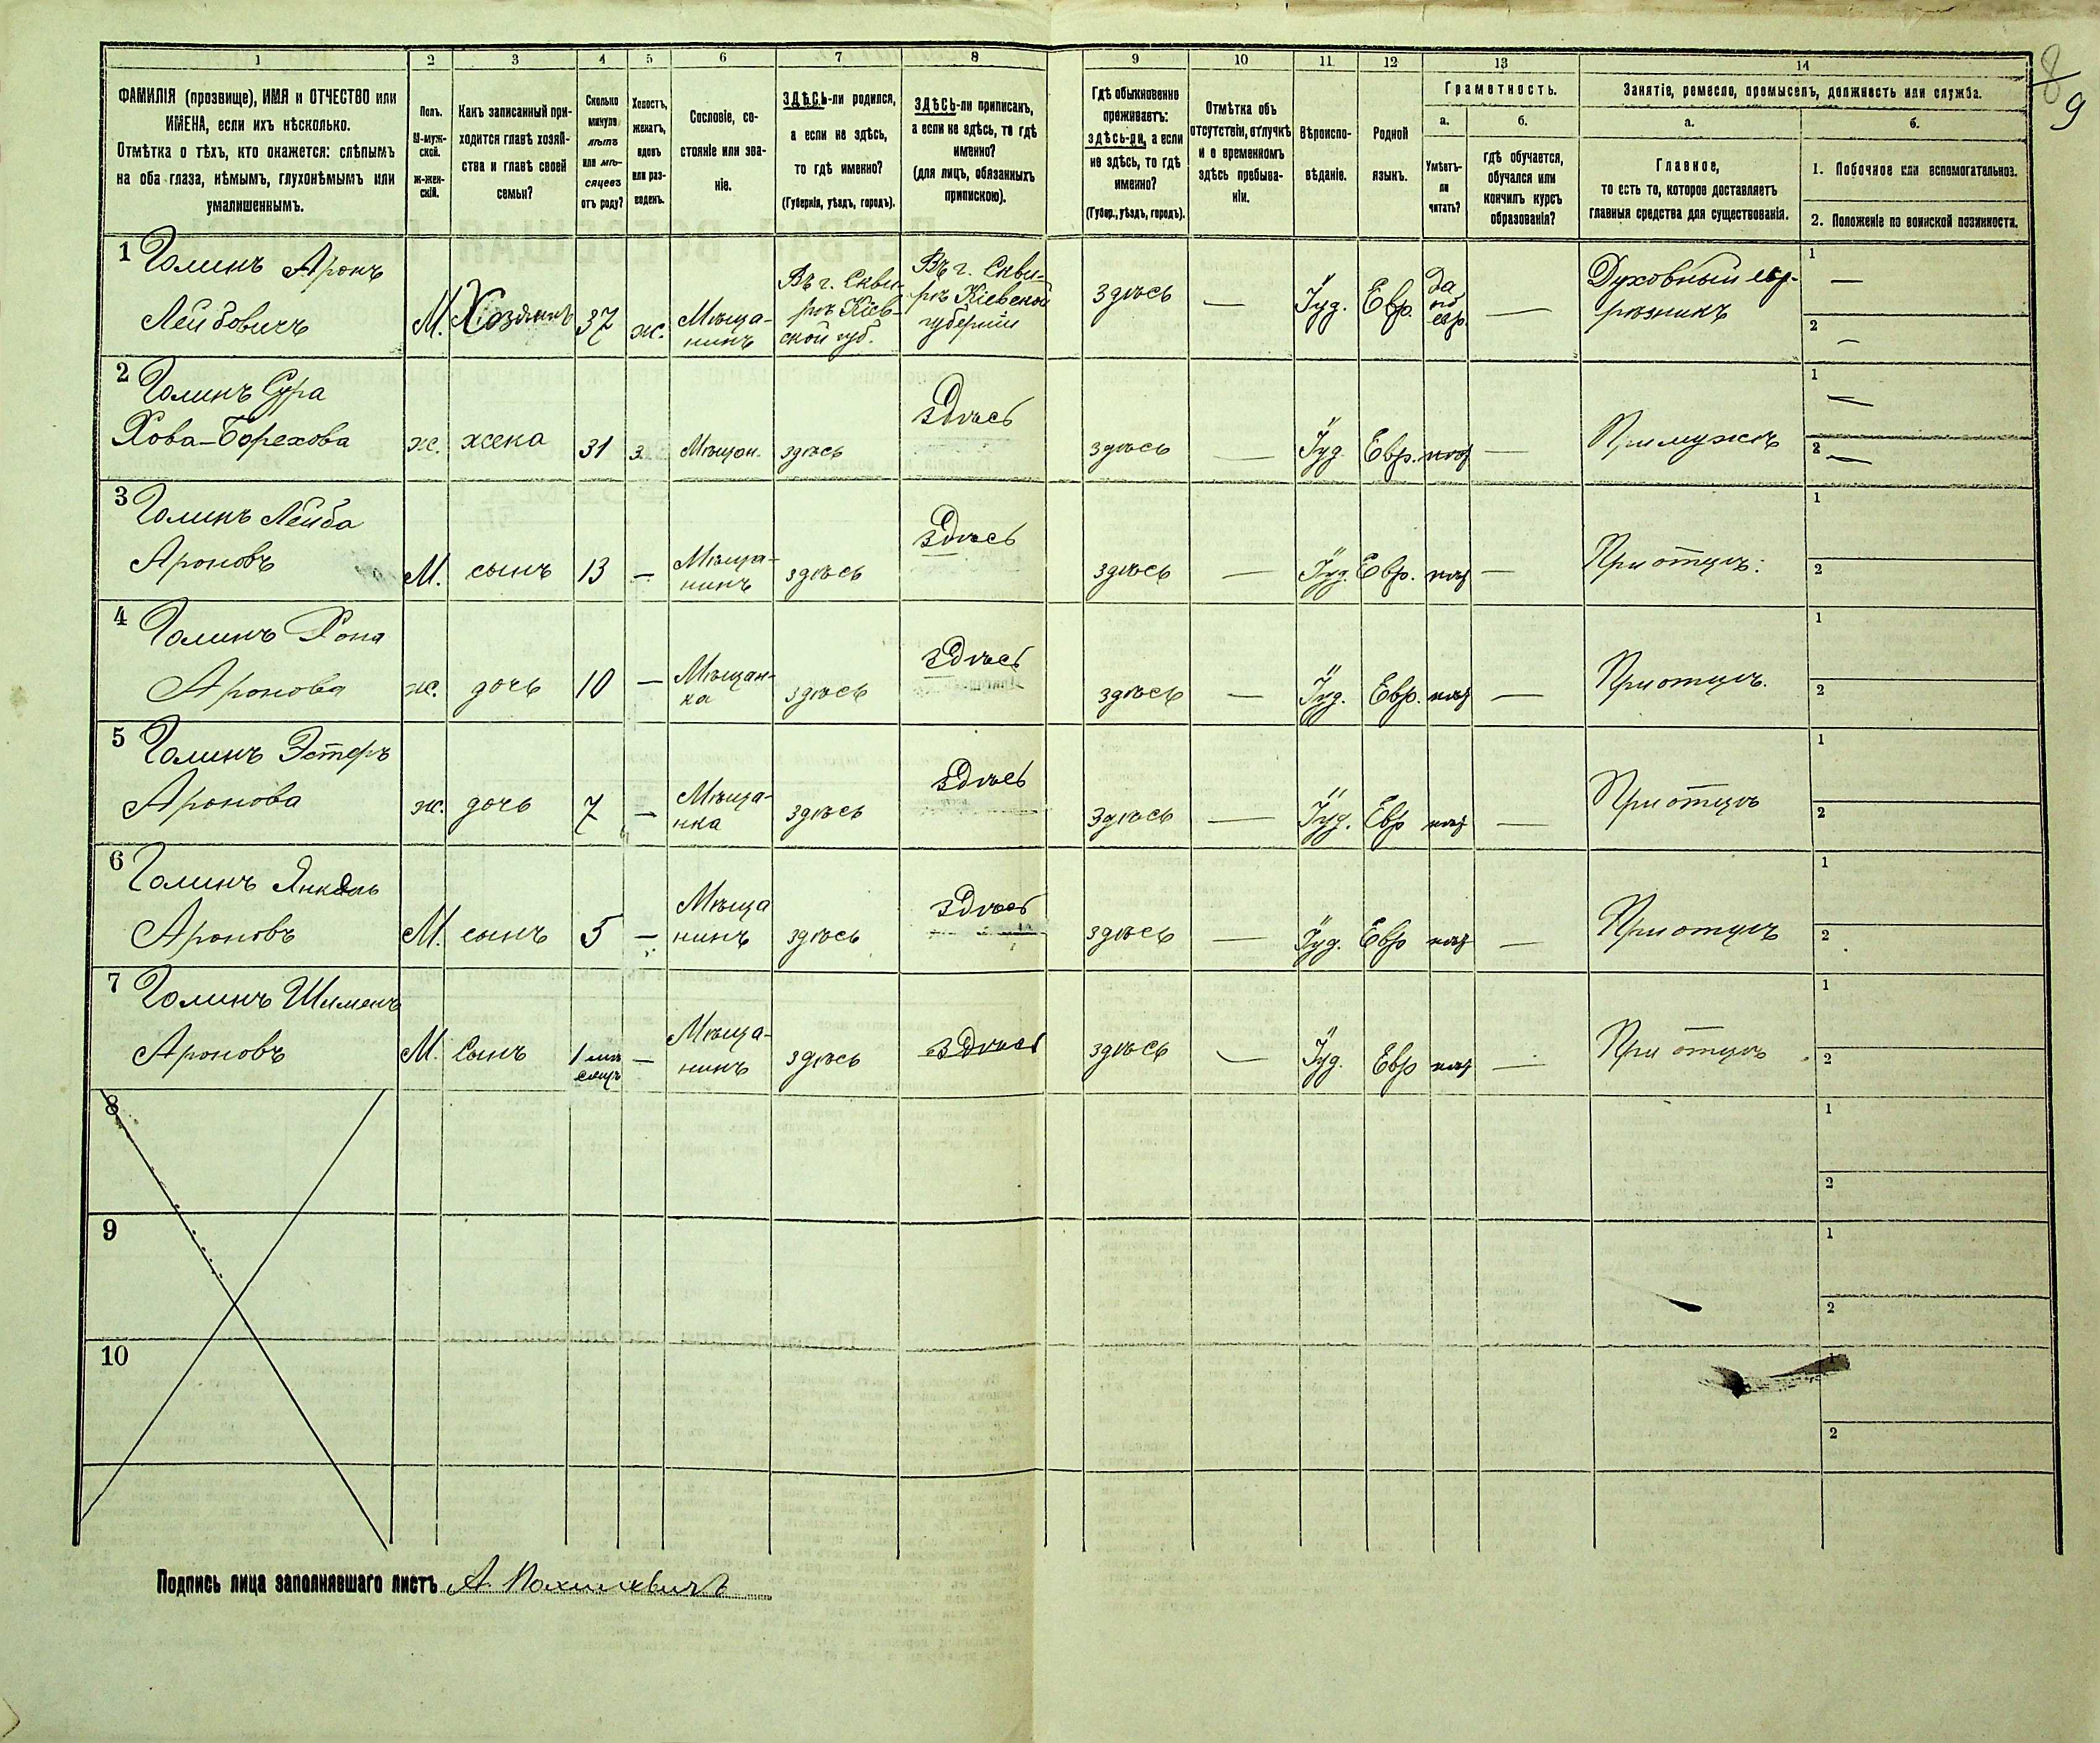 8/9
1 2 3 4 5 6 7 8 9 10 11 12 13 14
ФАМИЛІЯ (прозвище), ИМЯ и ОТЧЕСТВО или
ИМЕНА, если ихъ нѣсколько.
Отмѣтка о тѣхъ, кто окажется: слѣпымъ
на оба глаза, нѣмымъ, глухонѣмымъ или
умалишеннымъ.
Полъ.
М-муж-
ской.
Ж-жен-
скій.
Какъ записанный при-
ходится главѣ хозяй-
ства и главѣ своей
семьи?
Сколько
минуло
лѣтъ
или мѣ-
сяцевъ
отъ роду?
Холостъ,
женатъ,
вдовъ
или раз-
веденъ.
Сословіе, со-
стояніе или зва-
ніе.
ЗДѢСЬ-ли родился,
а если не здѣсь,
то гдѣ именно?
(Губернія, уѣздъ, городъ).
ЗДѢСЬ-ли приписанъ,
а если не здѣсь, то гдѣ
именно?
(для лицъ, обязанныхъ
припискою).
Гдѣ обыкновенно
проживаетъ:
здѣсь-ли, а если
не здѣсь, то гдѣ
именно?
(Губер., уѣздъ, городъ).
Отмѣтка объ
отсутствіи, отлучкѣ
и о временномъ
здѣсь пребыва-
ніи.
Вѣроиспо-
вѣданіе.
Родной
языкъ.
Грамотность.
а.
Умѣетъ-
ли
читать?
б.
гдѣ обучается,
обучался или
кончилъ курсъ
образованія?
Занятіе, ремесло, промыселъ, должность или служба.
а.
Главное,
то есть то, которое доставляетъ
главныя средства для существованія.
б.
1. Побочное или вспомогательное.
2. Положеніе по воинской повинности.
1 Голинъ Аронъ
Лейбовичъ
М. Хозяинъ 37 ж. Мѣща-
нинъ
Въ г. Сквы-
рѣ Кіев-
ской губ.
Въ г. Сквы-
рѣ Кіевской
губерніи
здѣсь — Іуд. Евр.
да
по
евр.
—
Духовный евр.
рѣзникъ
1 —
2 —
2 Голинъ Сура
Хова-Борехова
ж. жена 31 з. Мѣщан. здѣсь здѣсь здѣсь — Іуд. Евр. — При мужѣ
1 —
2 —
3 Голинъ Лейба
Ароновъ
М. сынъ 13 — Мѣща-
нинъ
здѣсь здѣсь здѣсь — Іуд. Евр. — При отцѣ.
1
2
4 Голинъ Хона
Аронова
ж. дочь 10 — Мѣщан-
ка
здѣсь здѣсь здѣсь — Іуд. Евр. — При отцѣ.
1
2
5 Голинъ Эстеръ
Аронова
ж. дочь 7 — Мѣща-
нка
здѣсь здѣсь здѣсь — Іуд. Евр — При отцѣ
1
2
6 Голинъ Янкель
Ароновъ
М. сынъ 5 — Мѣща
нинъ
здѣсь здѣсь здѣсь — Іуд. Евр — При отцѣ
1
2
7 Голинъ Шименъ
Ароновъ
М. Сынъ 1 мѣ
сяцъ
— Мѣща-
нинъ
здѣсь здѣсь здѣсь — Іуд. Евр — При отцѣ
1
2
8
1
2
9
1
2
10
1
2
Подпись лица заполнявшаго листъ А.